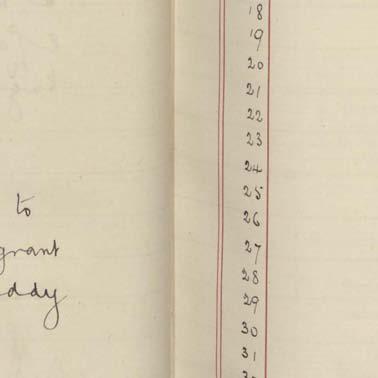 to
grant
ddy
18
19
20
21
22
23
24
25
26
27
28
29
30
31